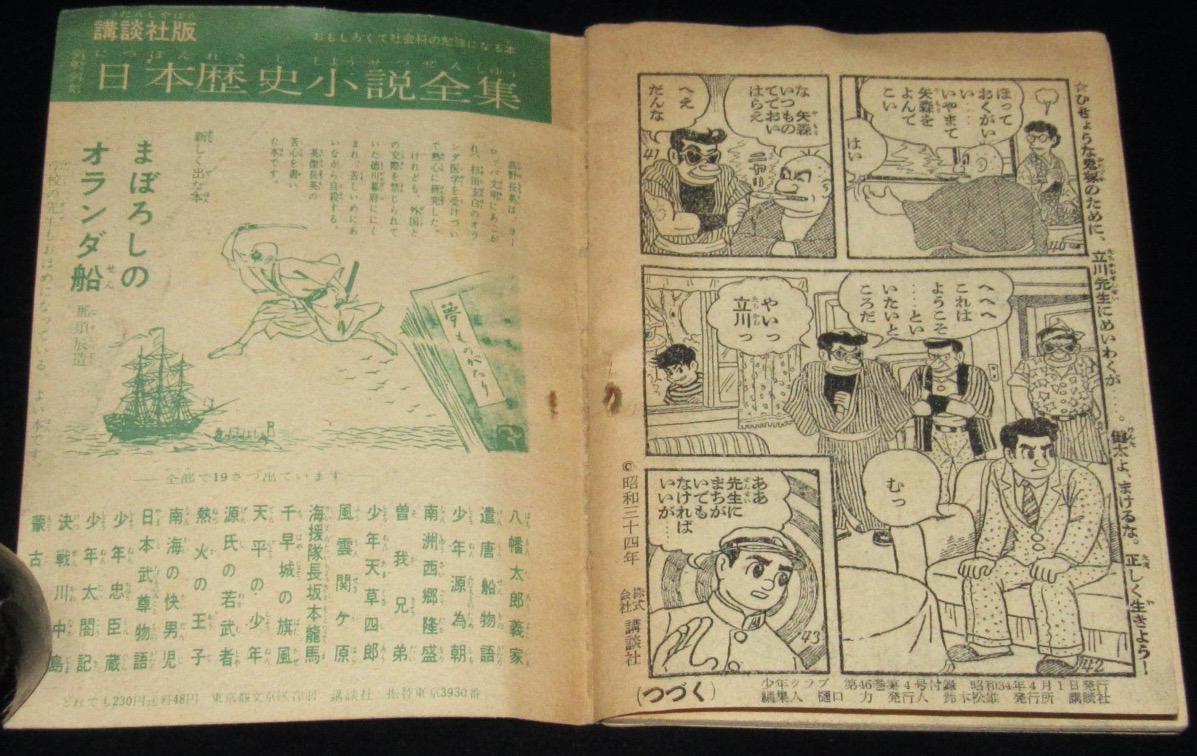 講談社版
おもしろくて社会科の勉強になる本
日本歴史小説全集
新しく出た本
まぼろしの
オランダ船
那須辰造
高野長英は、ヨー
ロッパ文明にあこが
ンダ医学を受けつい
で熱心に研究した。
けれども、外国と
の交際を禁じられて
いた徳川幕府ににく
まれ、苦しいめにあ
いながら自殺する。
英傑長英の
苦心を書い
た本です。
夢ものがたり
全部で19さつ出ています
八幡太郎義家
遣唐船物語
少年源為朝
南洲西郷隆盛
曽我兄弟
少年天草四郎
風雲関ケ原
海援隊長坂本龍馬
千早城の旗風
天平の少年
源氏の若武者
熱火の王子
南海の快男児
日本武尊物語
少年忠臣蔵
少年太閤記
決戦川中島
蒙古
どれでも230円送料48円 東京都文京区音羽 講談社 振替東京3930番
☆ひきょうな鬼塚のために、立川先生にめいわくが……。健太よ、まけるな。正しく生きよう!
ほって
おくがいい
…
いやまて
矢森を
よんで
こい
はい
40
な 矢森
いつもの
てでおい
はらえ
ニヤリ
へえ
だんな
41
へへへ
これは
ようこそ
…とい
いたいと
ころだ
やいっ
立川っ
むっ
42
ああ
先生に
まちが
いでも
なければ
いいが…
43
©昭和三十四年 株式会社 講談社
(つづく)
少年クラブ 第46巻第4号付録 昭和34年4月1日発行
編集人 樋口 力 発行人 鈴木松雄 発行所 講談社